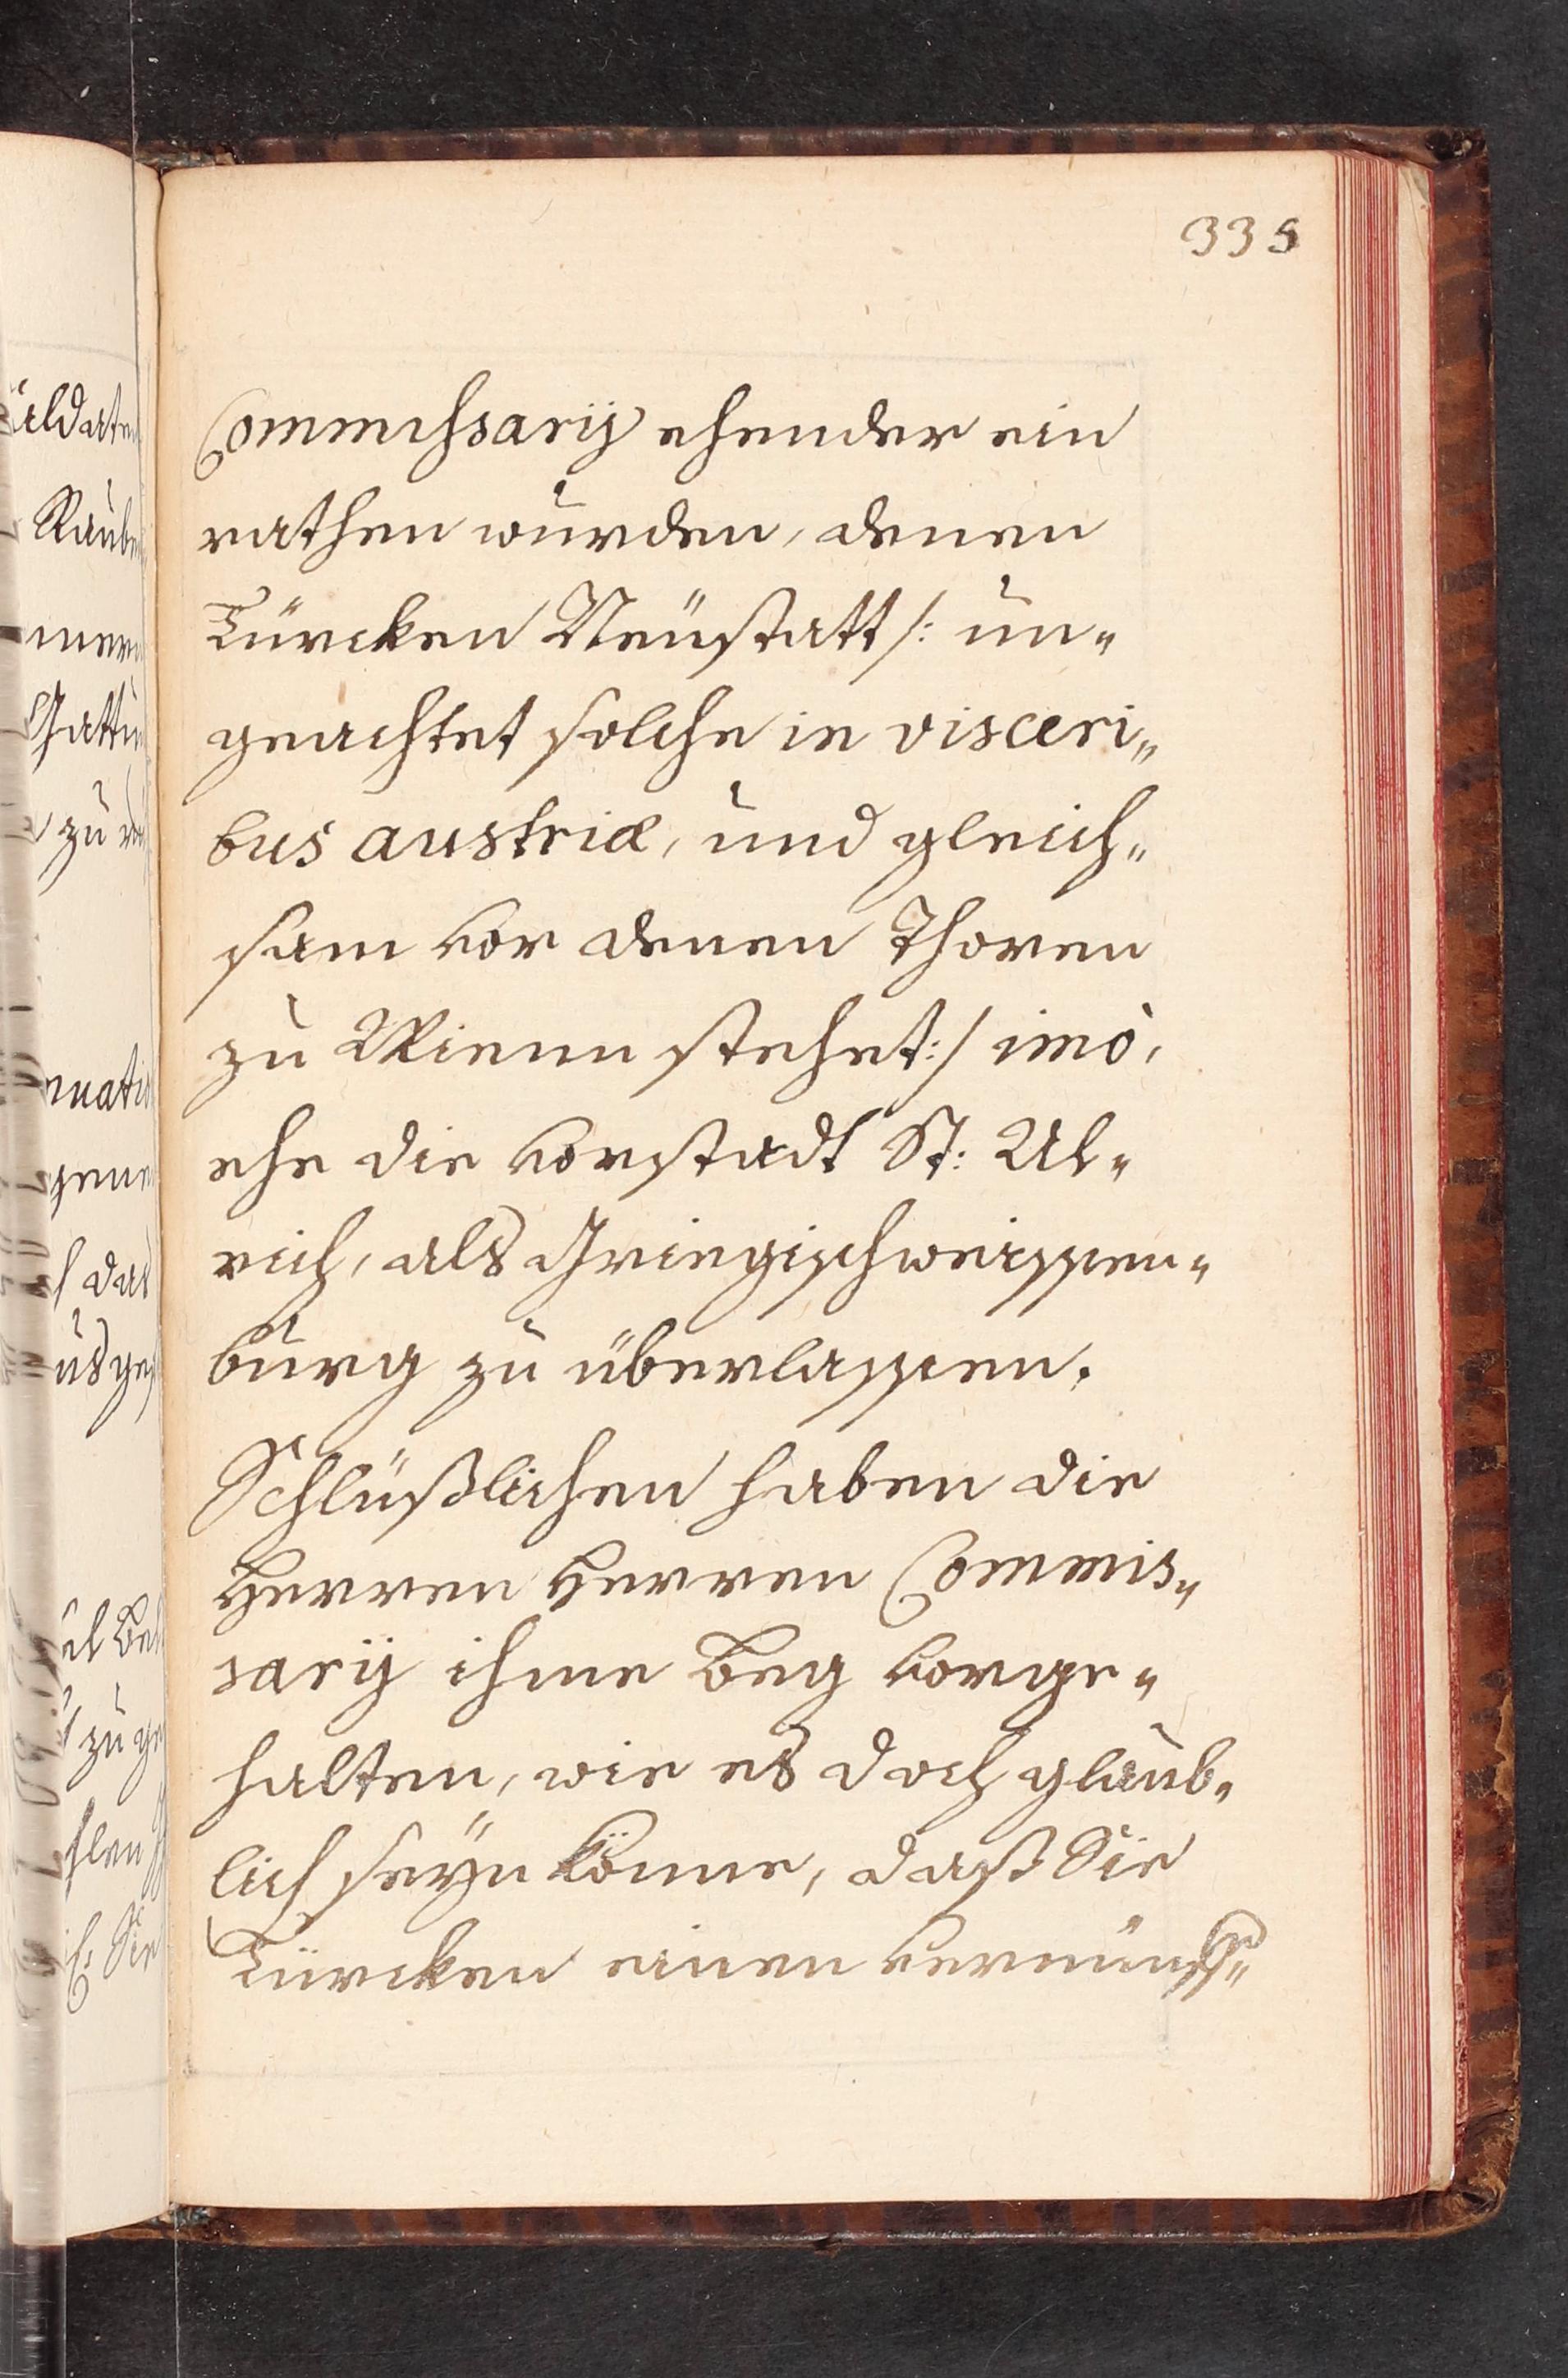 335
Commissarij ehender ein
rathen wurden, denen
Türcken Neüstatt /: un„
geachtet solche in visceri„
bus austriæ, und gleich„
sam vor denen Thoren
zu Wienn stehet :/ imò,
ehe die vorstadt St: Ul„
rich, als Griegischweissen„
burg zu überlassen.
Schlüßlichen haben die
Herren Herren Commis„
sarij ihme Beg vorge„
halten, wie es doch glaub„
lich seÿn könne, daß Sie
Türcken einen vernünff„